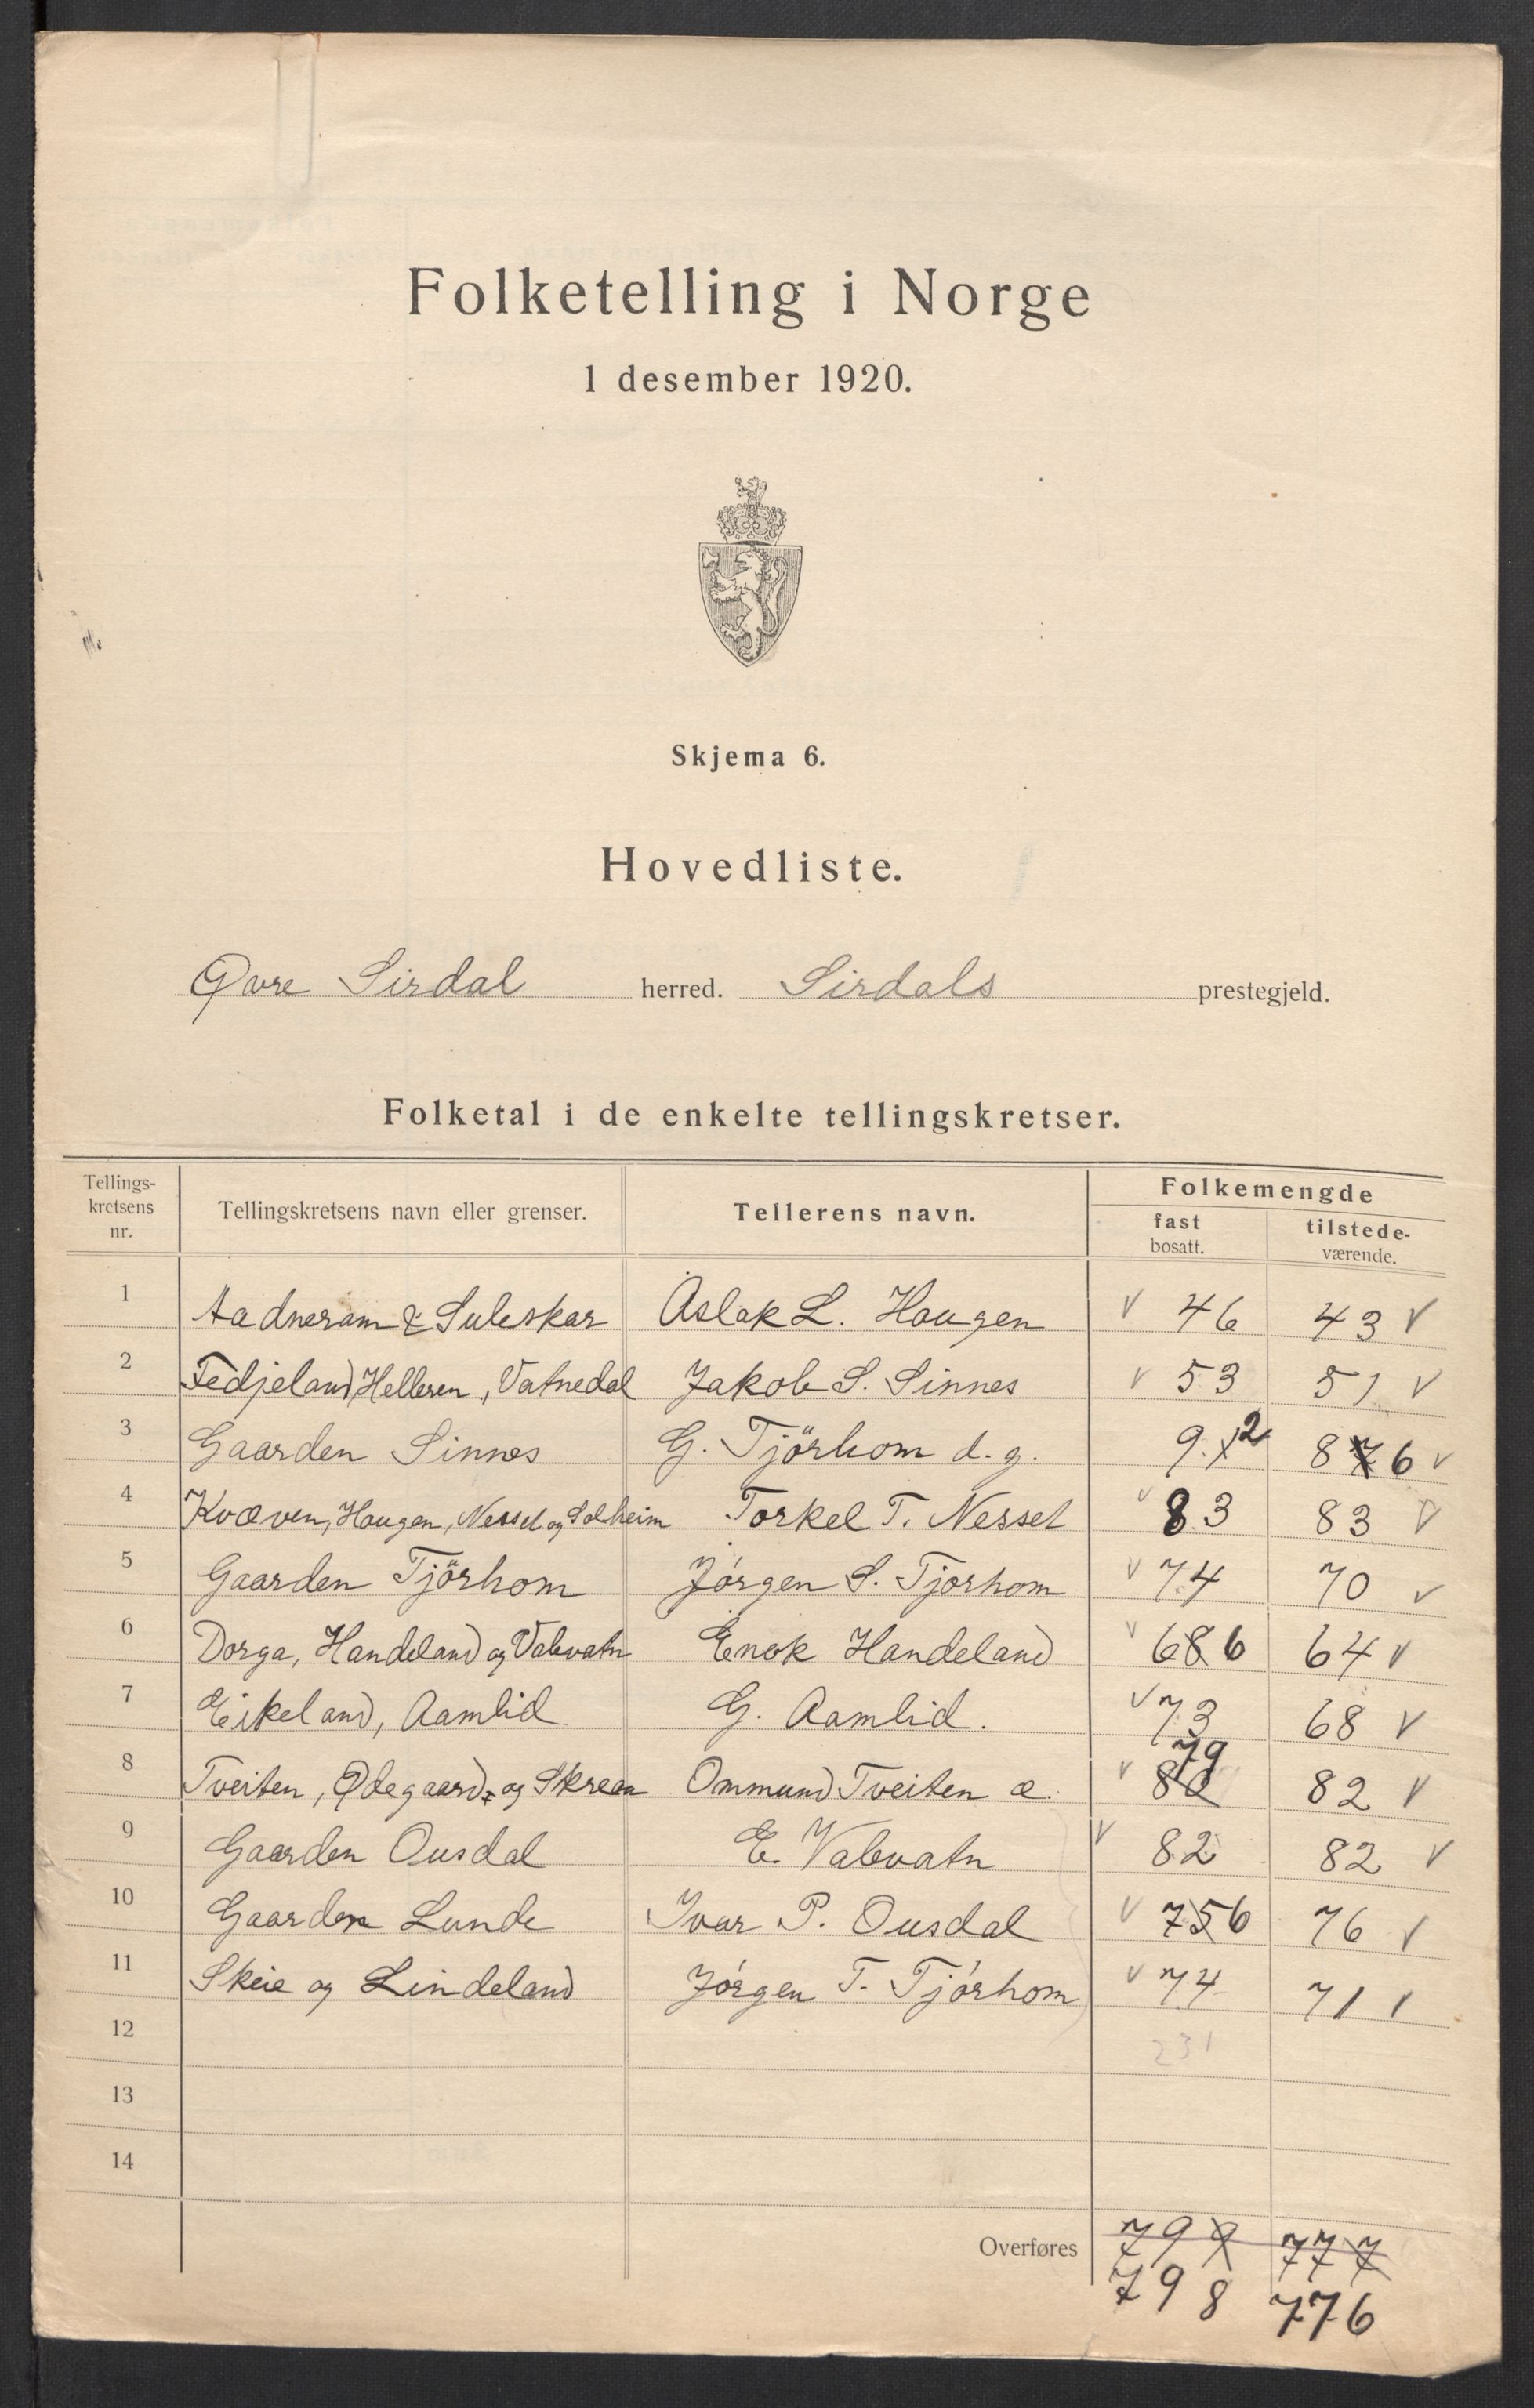 Folketelling i Norge
1 desember 1920.
Skjema 6.
Hovedliste.
Øvre Sirdal herred. Sirdals prestegjeld.
Folketal i de enkelte tellingskretser.
Tellings-kretsens nr. Tellingskretsens navn eller grenser. Tellerens navn. Folkemengde fast bosatt. tilstede-værende.
1 Aadneram & Suleskar Aslak L. Haugen V 46 43 V
2 Fedjeland, Helleren, Vatnedal Jakob S. Sinnes V 53 51 V
3 Gaarden Sinnes G. Tjörhom d.y. 912 876 V
4 Kvæven, Haugen, Nesset og Solheim Torkel T. Nesset V 83 83 V
5 Gaarden Tjörhom Jórgen S. Tjorhom V 74 70 V
6 Dorga, Handeland og Valevatn Enok Handeland V 686 64 V
7 Eikeland, Aamlid G. Aamlid. V 73 68 V
79
8 Tveiten, Ødegaard og Skreaa Ommund Tveiten æ. V 82 82 V
9 Gaarden Ousdal E. Valevatn V 82 82 V
10 Gaarden Lunde Ivar P. Ousdal V 756 76 V
11 Skeie og Lindeland Jórgen T. Tjórhom V 74 71 V
12 231
13
14
Overføres 799 777
798 776